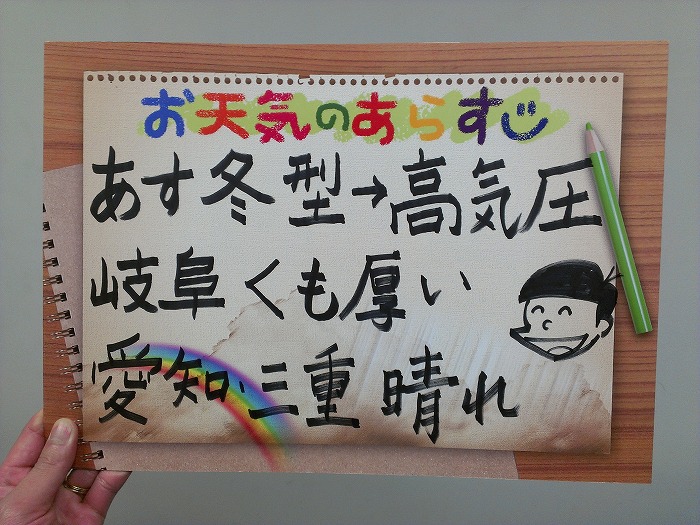 お天気のあらすじ
あす冬型→高気圧
岐阜くも厚い
愛知・三重 晴れ